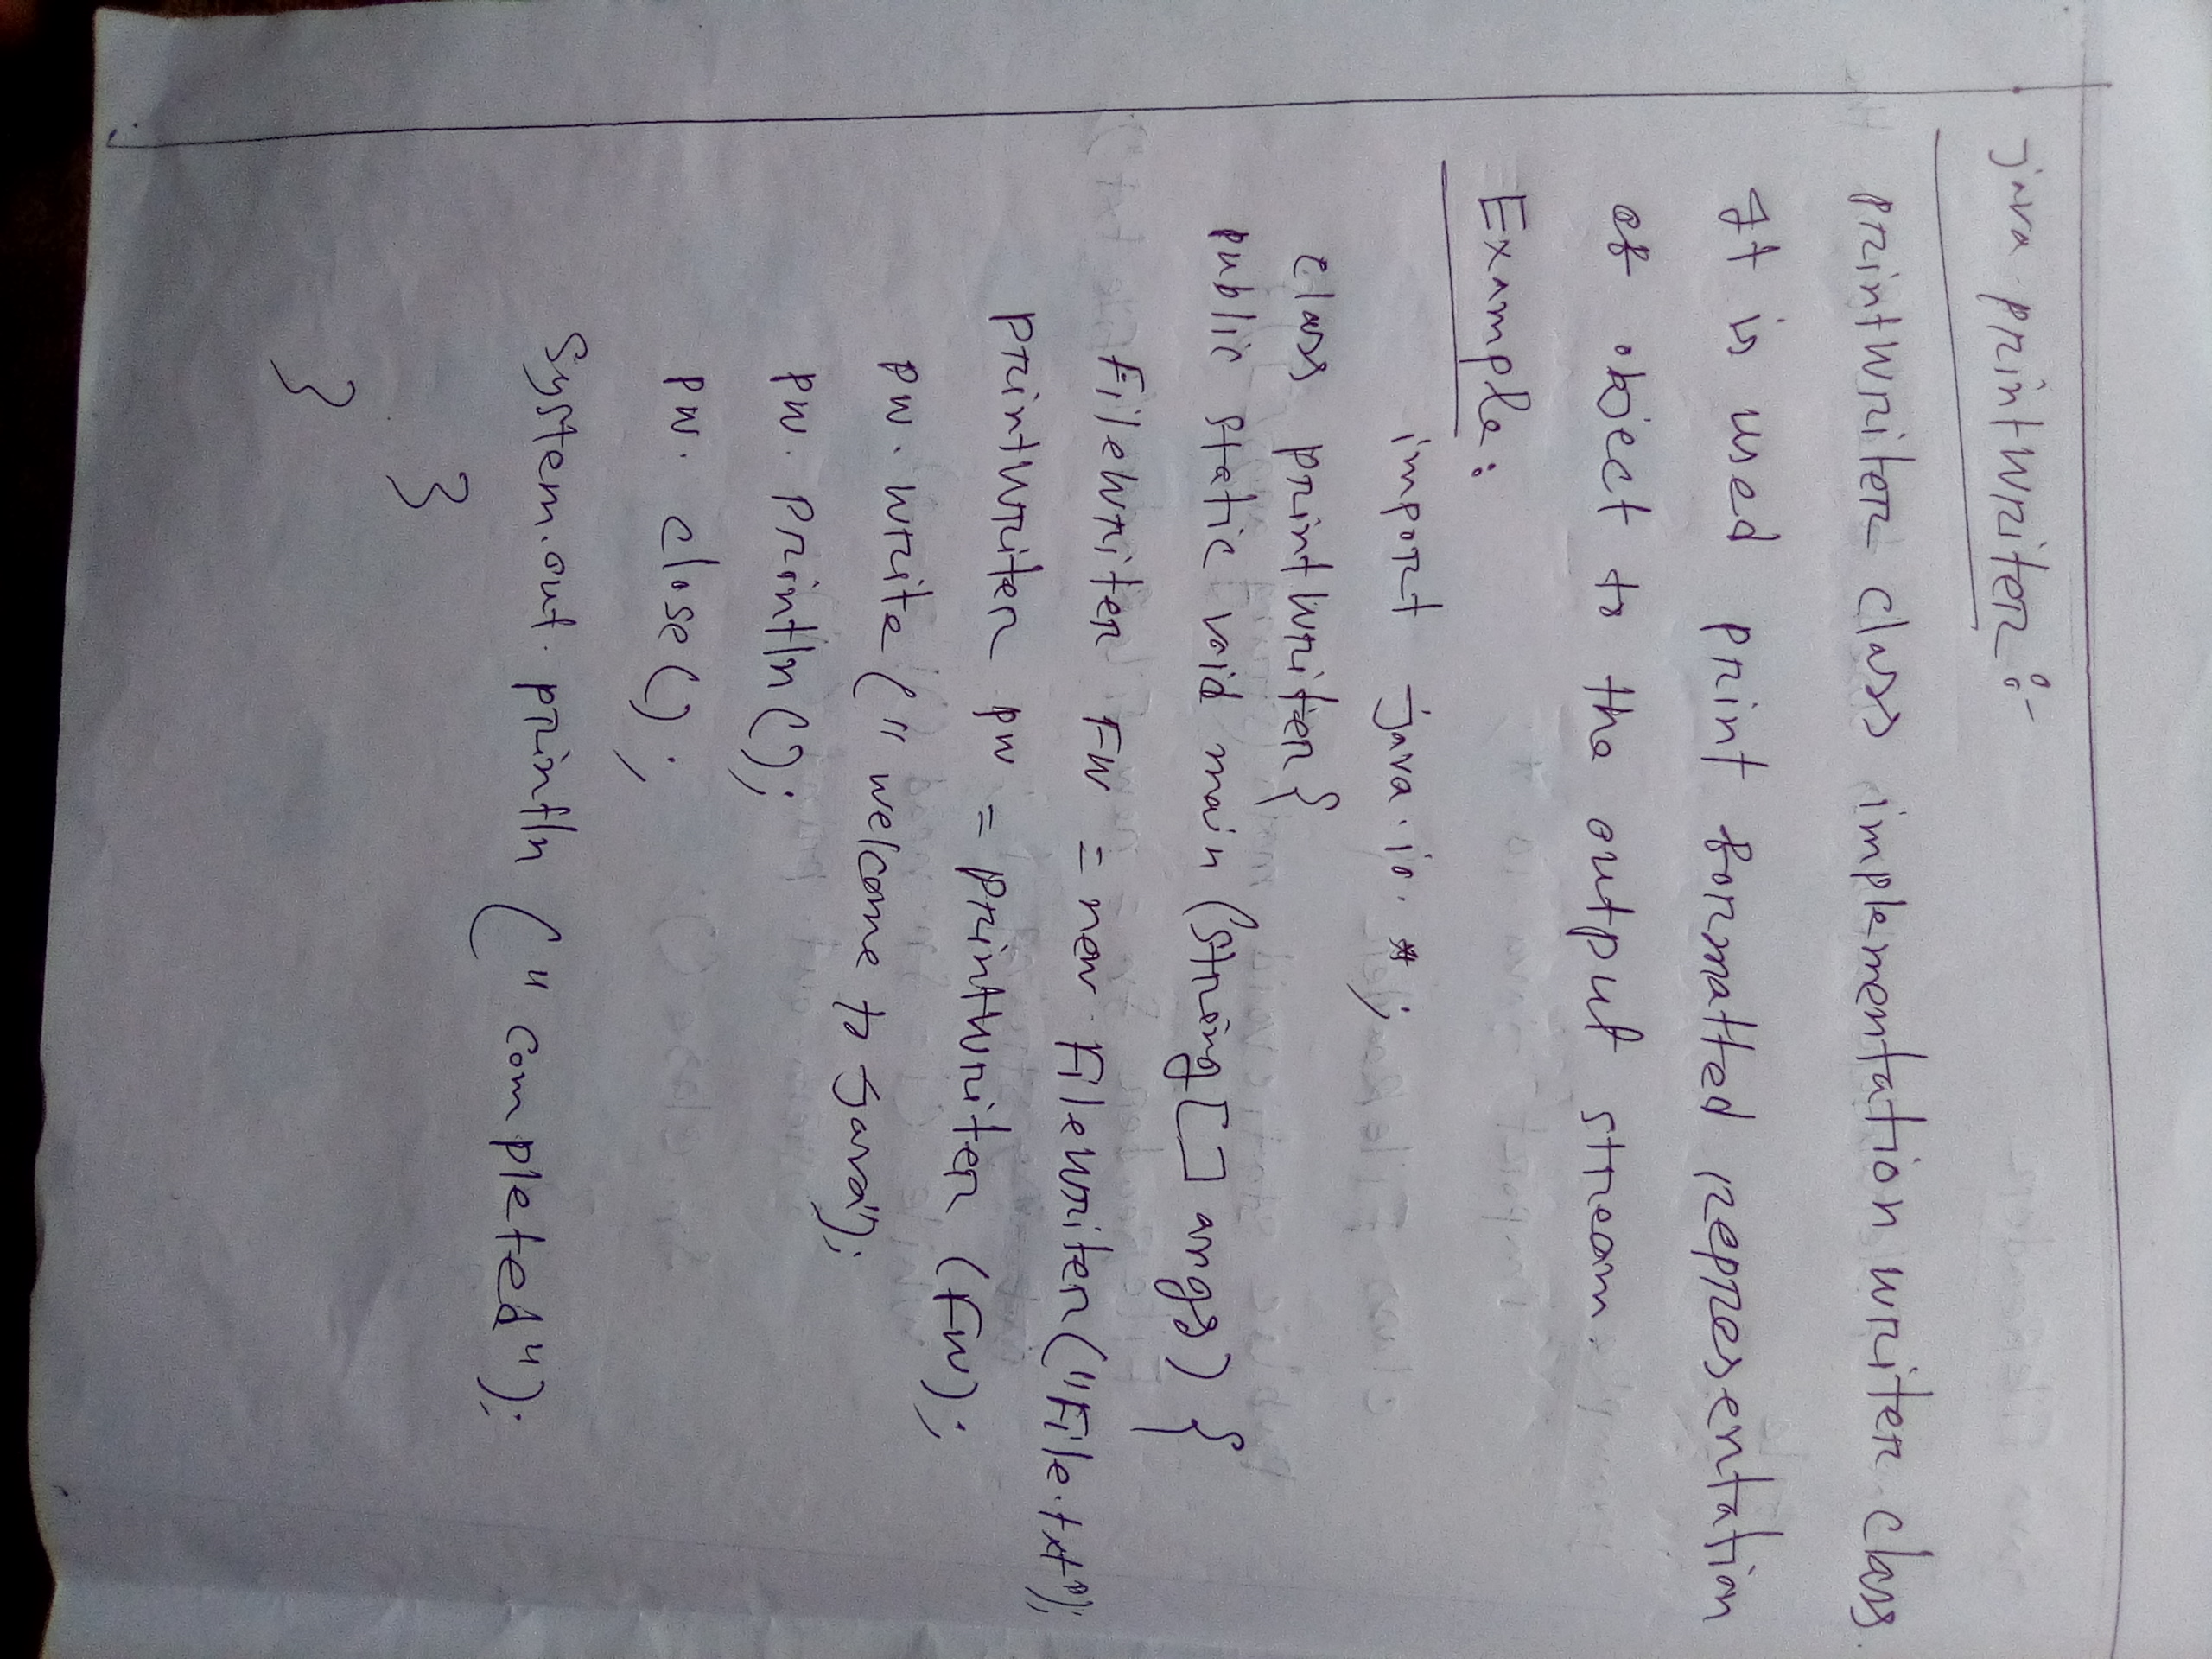 java printWriter :-
printWriter class implementation writer class.
It is used print formatted representation
of object to the output stream.
Example:
import java.io.*;
class printWriter{
public static void main (String[] args) {
FileWriter FW = new FileWriter("File.txt");
printWriter pw = printWriter (FW);
pw. write (" welcome to java");
pw. println();
pw. close();
System.out.println ("completed");
}
}